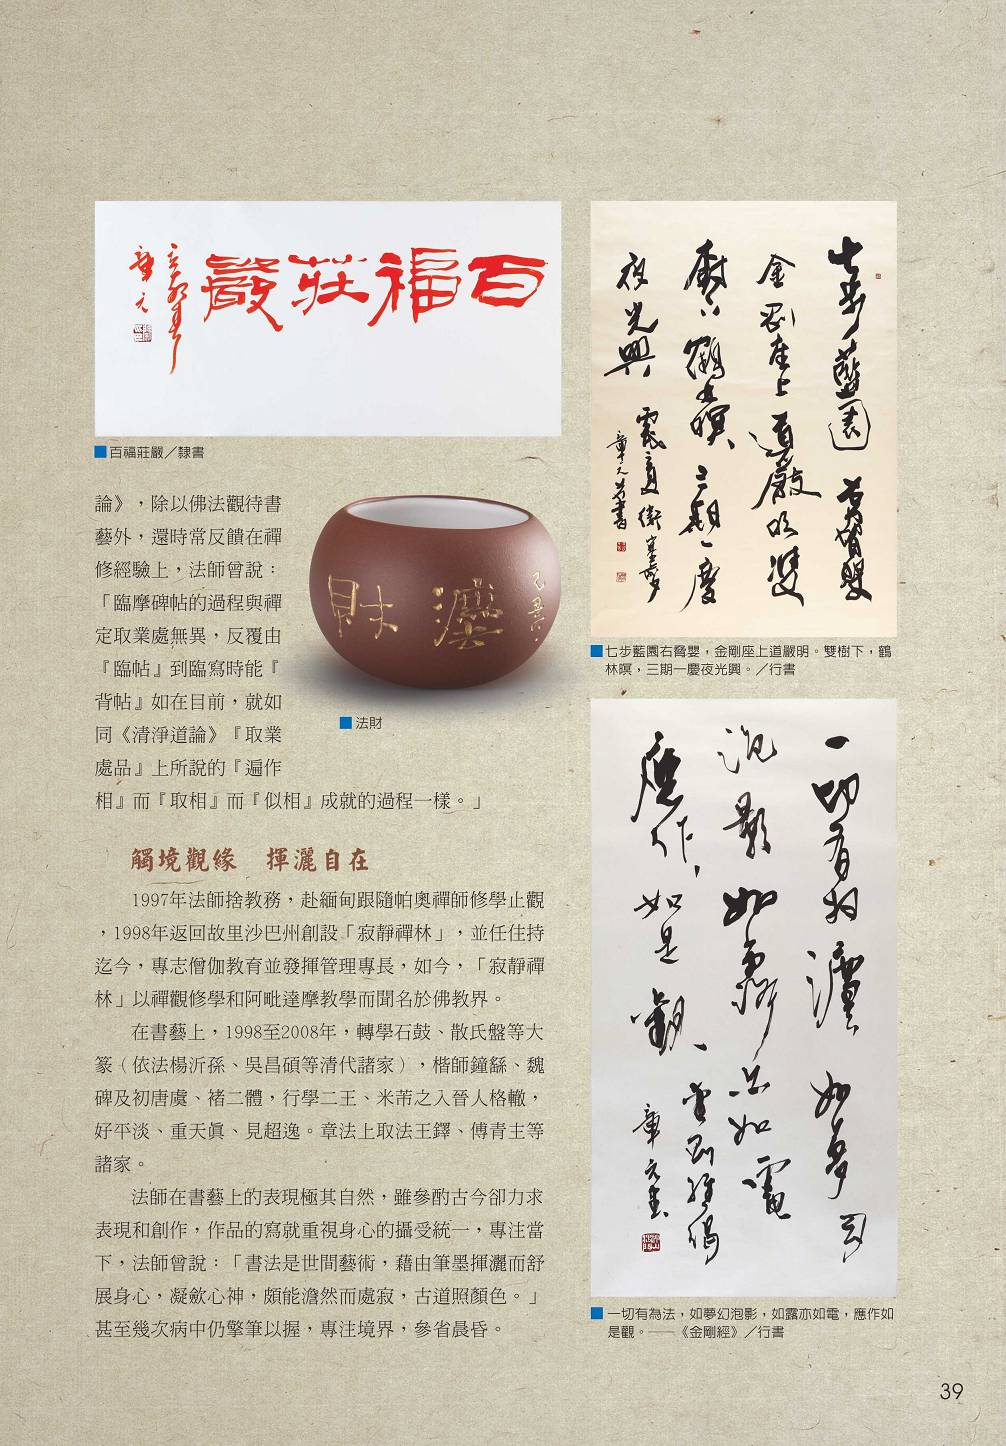 百福莊嚴
章元
■百福莊嚴／隸書
論》，除以佛法觀待書
藝外，還時常反饋在禪
修經驗上，法師曾說：
「臨摩碑帖的過程與禪
定取業處無異，反覆由
『臨帖』到臨寫時能『
背帖』如在目前，就如
同《清淨道論》『取業
處品』上所說的『遍作
相』而『取相』而『似相』成就的過程一樣。」
法財
■法財
觸境觀緣　揮灑自在
1997年法師捨教務，赴緬甸跟隨帕奧禪師修學止觀
，1998年返回故里沙巴州創設「寂靜禪林」，並任住持
迄今，專志僧伽教育並發揮管理專長，如今，「寂靜禪
林」以禪觀修學和阿毗達摩教學而聞名於佛教界。
在書藝上，1998至2008年，轉學石鼓、散氏盤等大
篆（依法楊沂孫、吳昌碩等清代諸家），楷師鐘繇、魏
碑及初唐虞、褚二體，行學二王、米芾之入晉人格轍，
好平淡、重天眞、見超逸。章法上取法王鐸、傅青主等
諸家。
法師在書藝上的表現極其自然，雖參酌古今卻力求
表現和創作，作品的寫就重視身心的攝受統一，專注當
下，法師曾說：「書法是世間藝術，藉由筆墨揮灑而舒
展身心，凝歛心神，頗能澹然而處寂，古道照顏色。」
甚至幾次病中仍擎筆以握，專注境界，參省晨昏。
七步藍園右脅嬰
金剛座上道嚴明雙
樹下鶴林暝三期一慶
夜光興
章元
■七步藍園右脅嬰，金剛座上道嚴明。雙樹下，鶴
林暝，三期一慶夜光興。／行書
一切有為法如夢幻
泡影如露亦如電
應作如是觀
金剛經偈
章元書
■一切有為法，如夢幻泡影，如露亦如電，應作如
是觀。——《金剛經》／行書
39